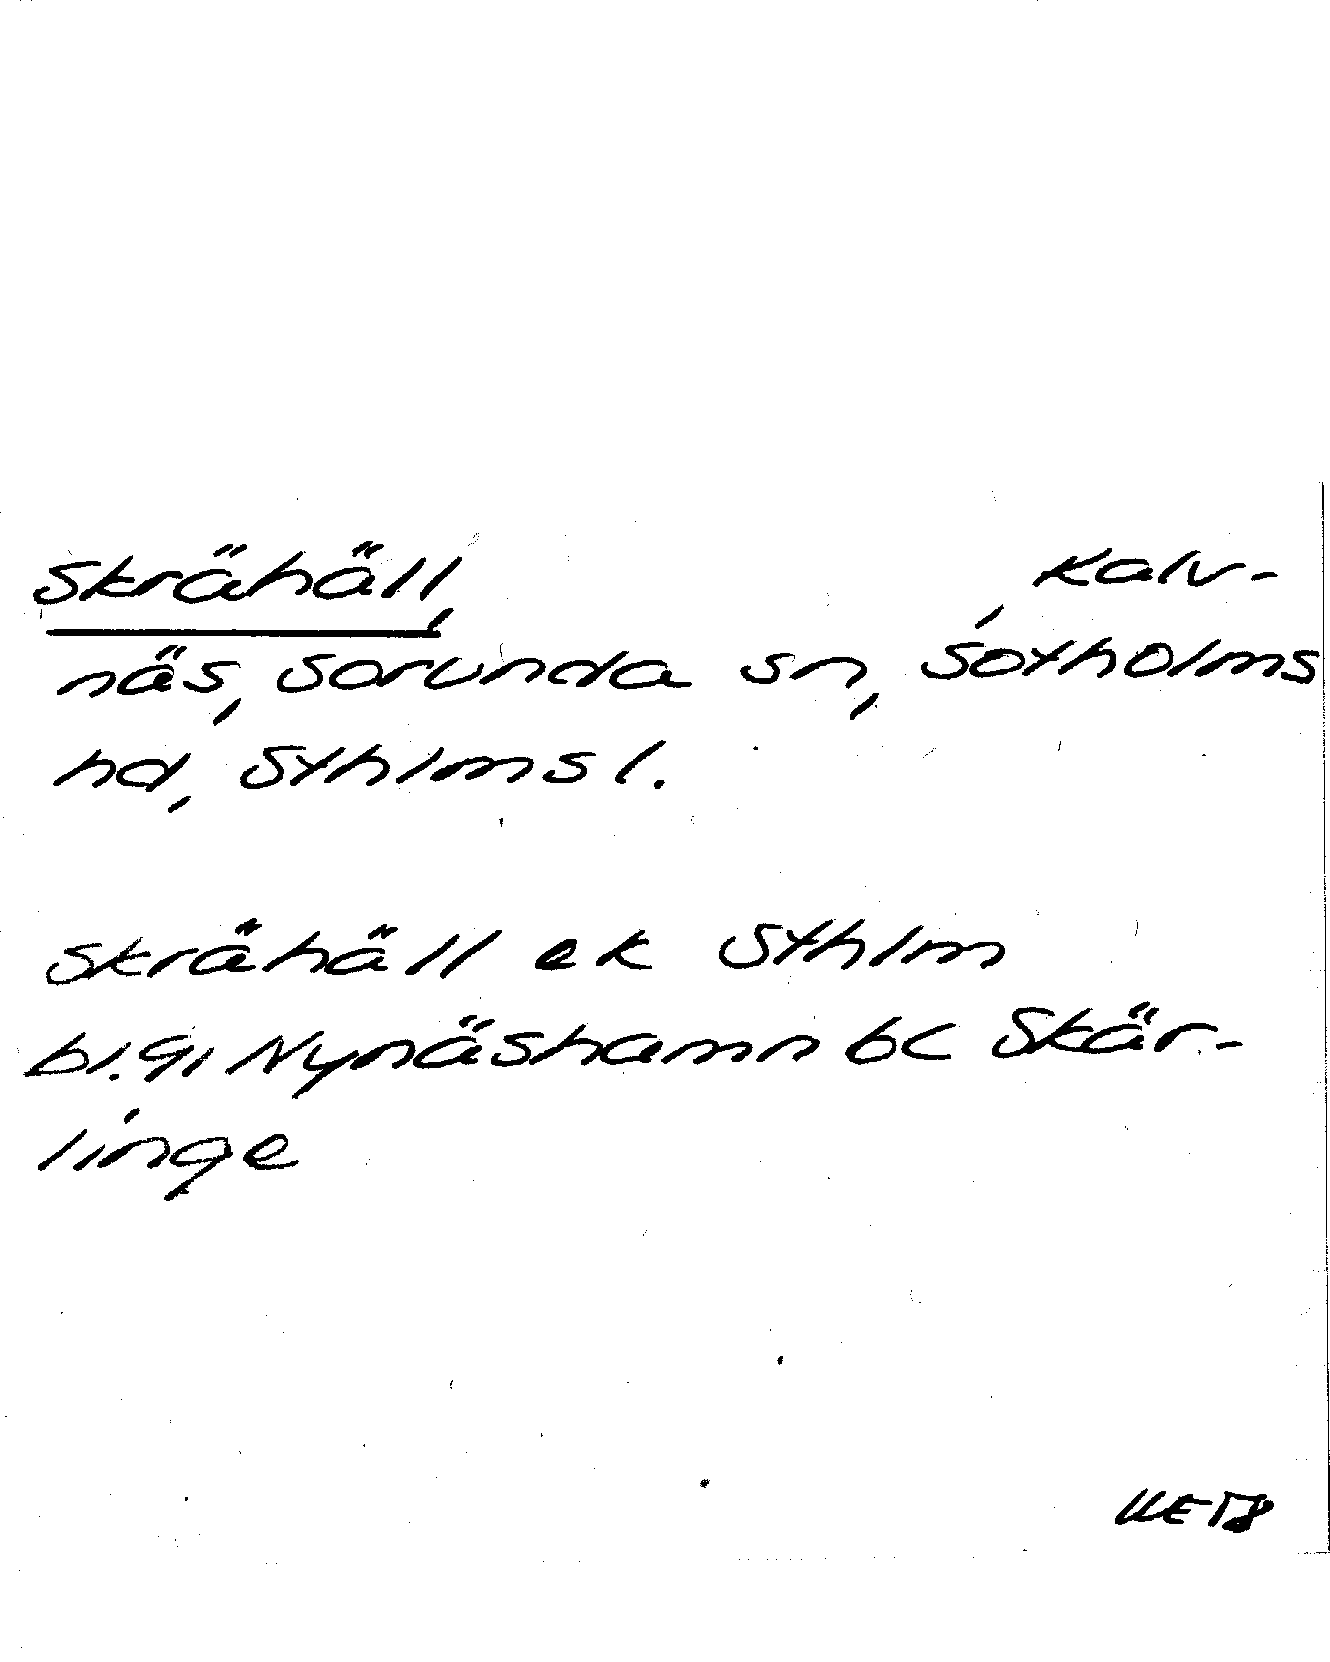 Skrähäll, Kalv-
näs, Sorunda sn, Sotholms
hd, Sthlms l.
Skrähäll ek Sthlm
bl. 91 Nynäshamn bc Skär-
linge